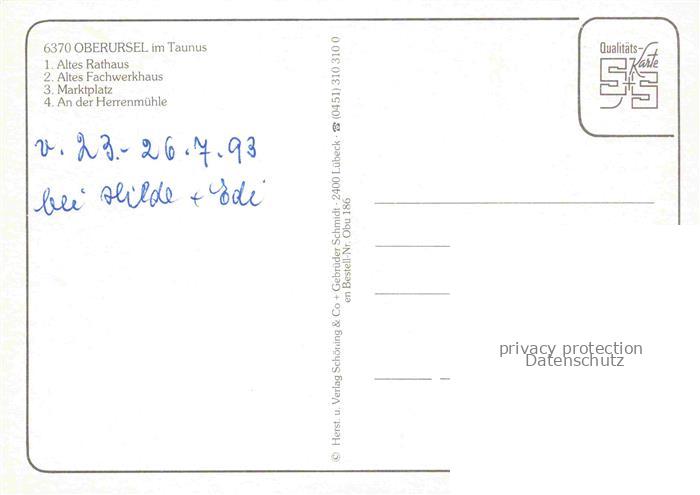 6370 OBERURSEL im Taunus
1. Altes Rathaus
2. Altes Fachwerkhaus
3. Marktplatz
4. An der Herrenmühle
v. 23.- 26.7.93
bei Hilde + Edi
© Herst. u. Verlag Schöning & Co + Gebrüder Schmidt · 2400 Lübeck · ☎ (0451) 310 310 0
en Bestell-Nr. Obu 186
Qualitäts-
Karte
S+S
privacy protection
Datenschutz